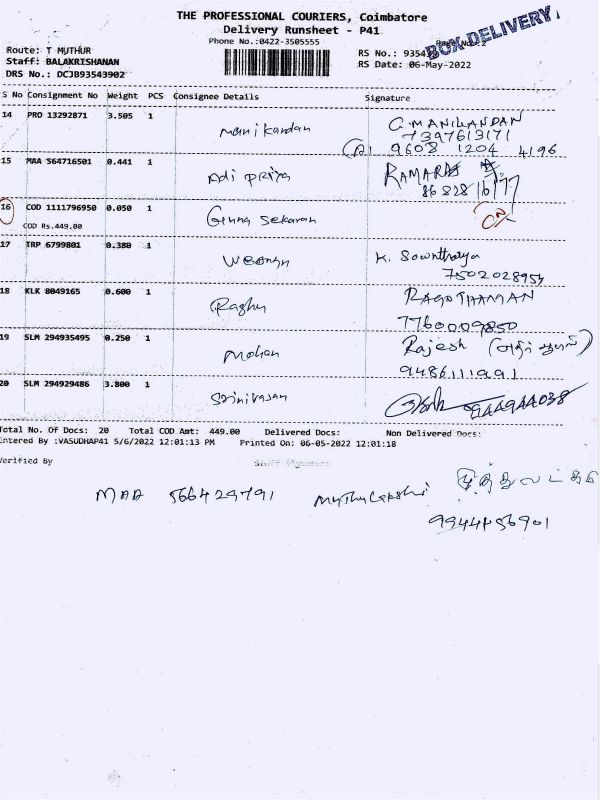 THE PROFESSIONAL COURIERS, Coimbatore
Delivery Runsheet - P41
Phone No.:0422-3505555
BOX DELIVERY
Route: T MUTHUR
Staff: BALAKRISHANAN
DRS No.: DCJB93543902
RS No.: 9354
RS Date: 06-May-2022
S No Consignment No Weight PCS Consignee Details Signature
14 PRO 13292871 3.505 1 Manikandan C. MANIKANDAN
7397613171
9608 1204 4196
15 MAA 564716501 0.441 1 Adi priya RAMARAJ
86828
16 COD 1111796950 0.050 1 Guna Sekaran
COD Rs.449.00
17 TRP 6799801 0.380 1 K. Sownthaya
7502028954
18 KLK 8049165 0.600 1 Raghu RAGOTHAMAN
7760009850
19 SLM 294935495 0.250 1 Mohan Rajesh
9486111991
20 SLM 294929486 3.800 1 Srinivasan 9444944038
Total No. Of Docs: 20 Total COD Amt: 449.00 Delivered Docs: Non Delivered Docs:
Entered By :VASUDHAP41 5/6/2022 12:01:13 PM Printed On: 06-05-2022 12:01:18
Verified By Staff Signature
MAA 566429791 Muthulakshmi
9944456901